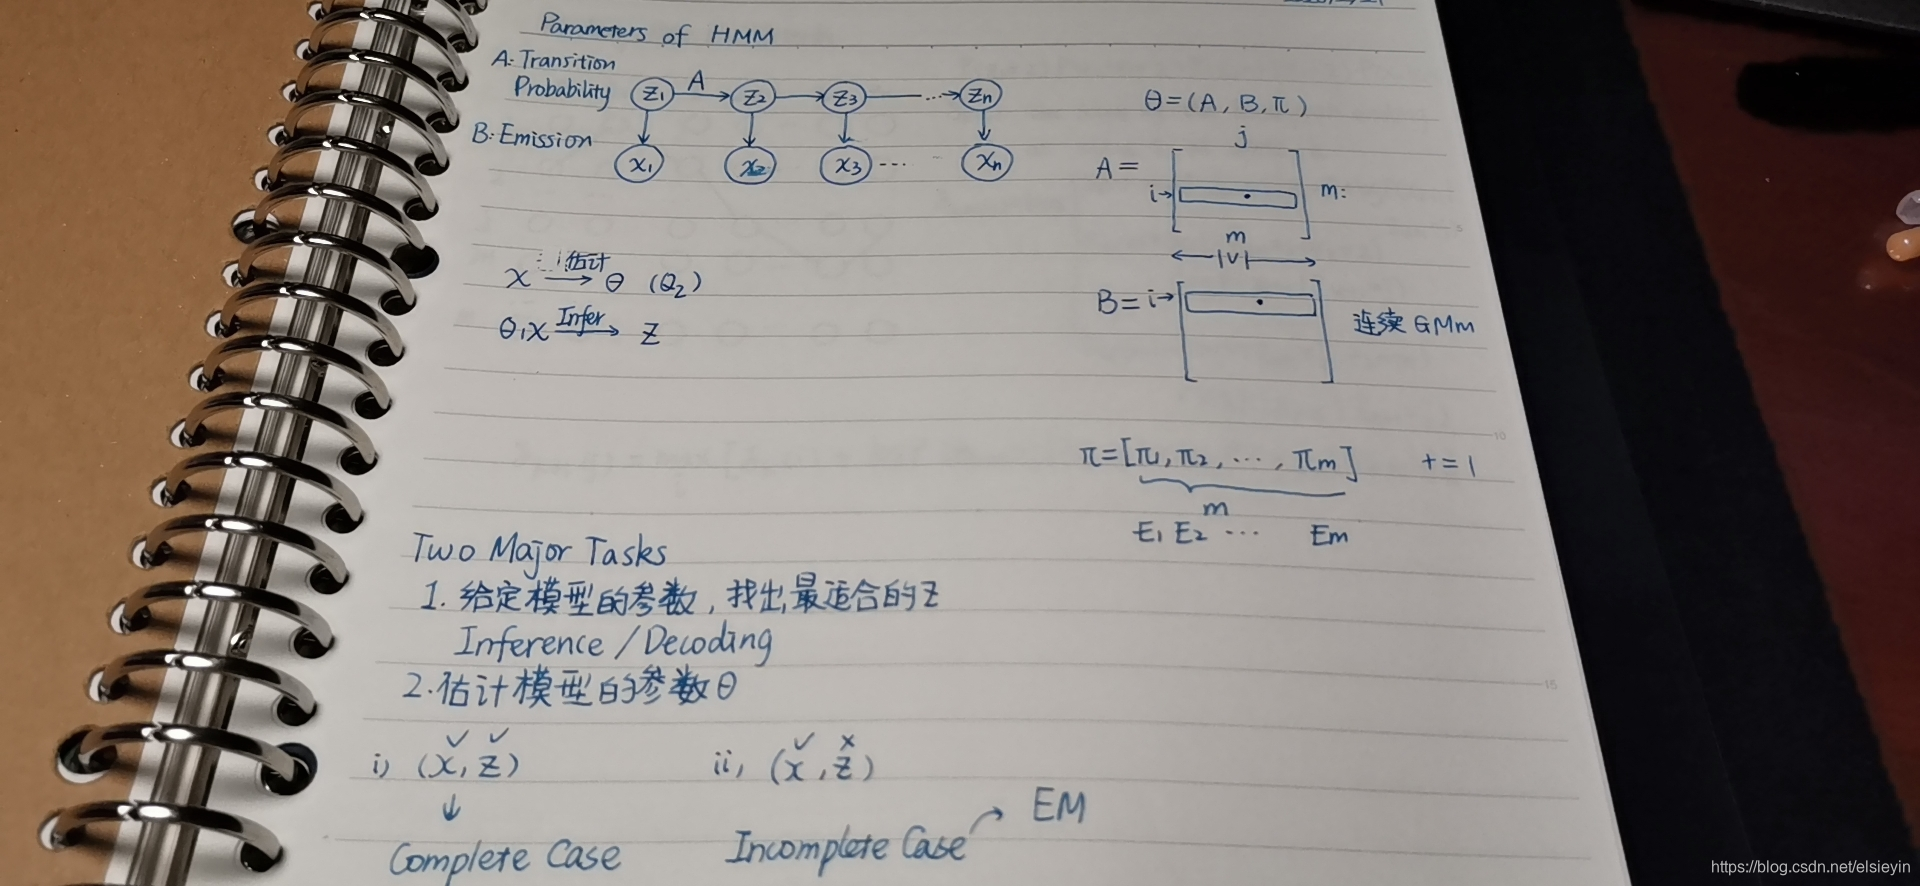 Parameters of HMM
A: Transition
Probability
A
Z1 Z2 Z3 ... Zn
B: Emission
x1 x2 x3 ... xn
θ=(A, B, π)
j
A=
i→
m
m
|V|
B= i→
连续 GMm
x 估计→ θ (θ2)
θ,x Infer→ Z
π=[π1, π2, ..., πm] += 1
m
E1 E2 ... Em
Two Major Tasks
1. 给定模型的参数, 找出最适合的Z
Inference / Decoding
2. 估计模型的参数θ
✓ ✓
i) (x, z)
↓
Complete Case
✓ ×
ii) (x, z)
Incomplete Case → EM
https://blog.csdn.net/elsieyin